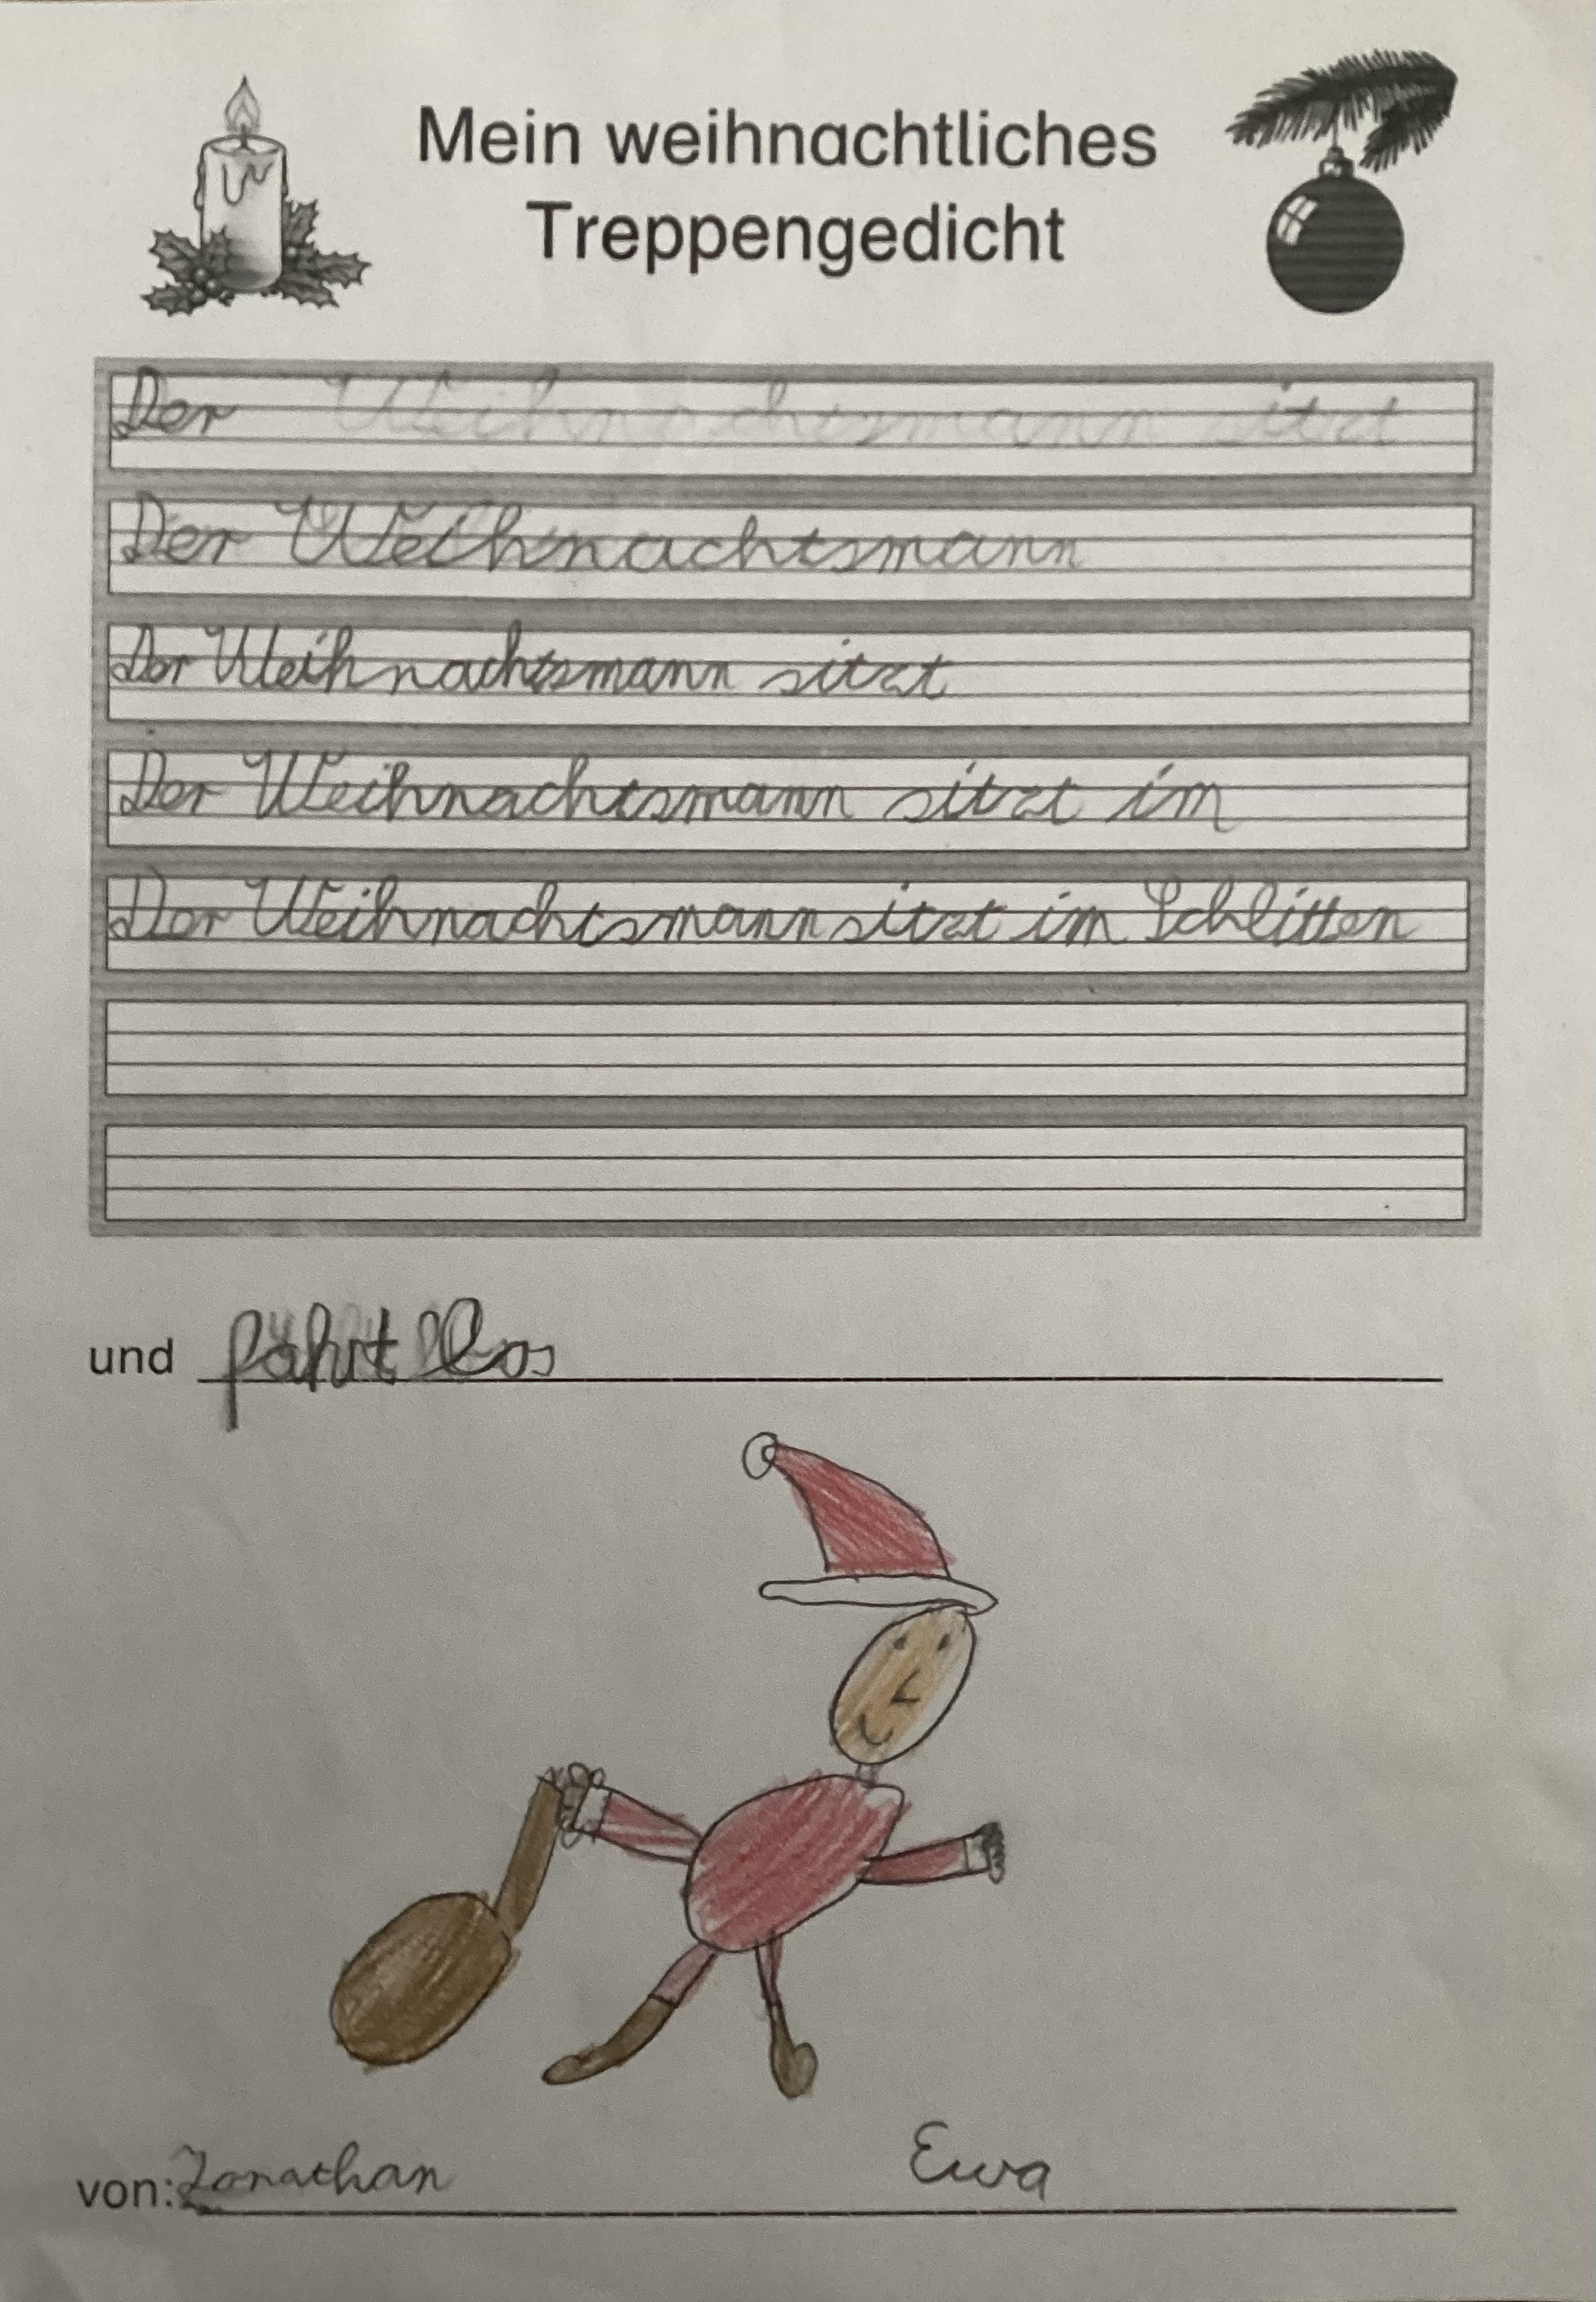 Mein weihnachtliches
Treppengedicht
Der Weihnachtsmann sitzt
Der Weihnachtsmann
Der Weihnachtsmann sitzt
Der Weihnachtsmann sitzt im
Der Weihnachtsmann sitzt im Schlitten
und fährt los
von: Jonathan Ewa